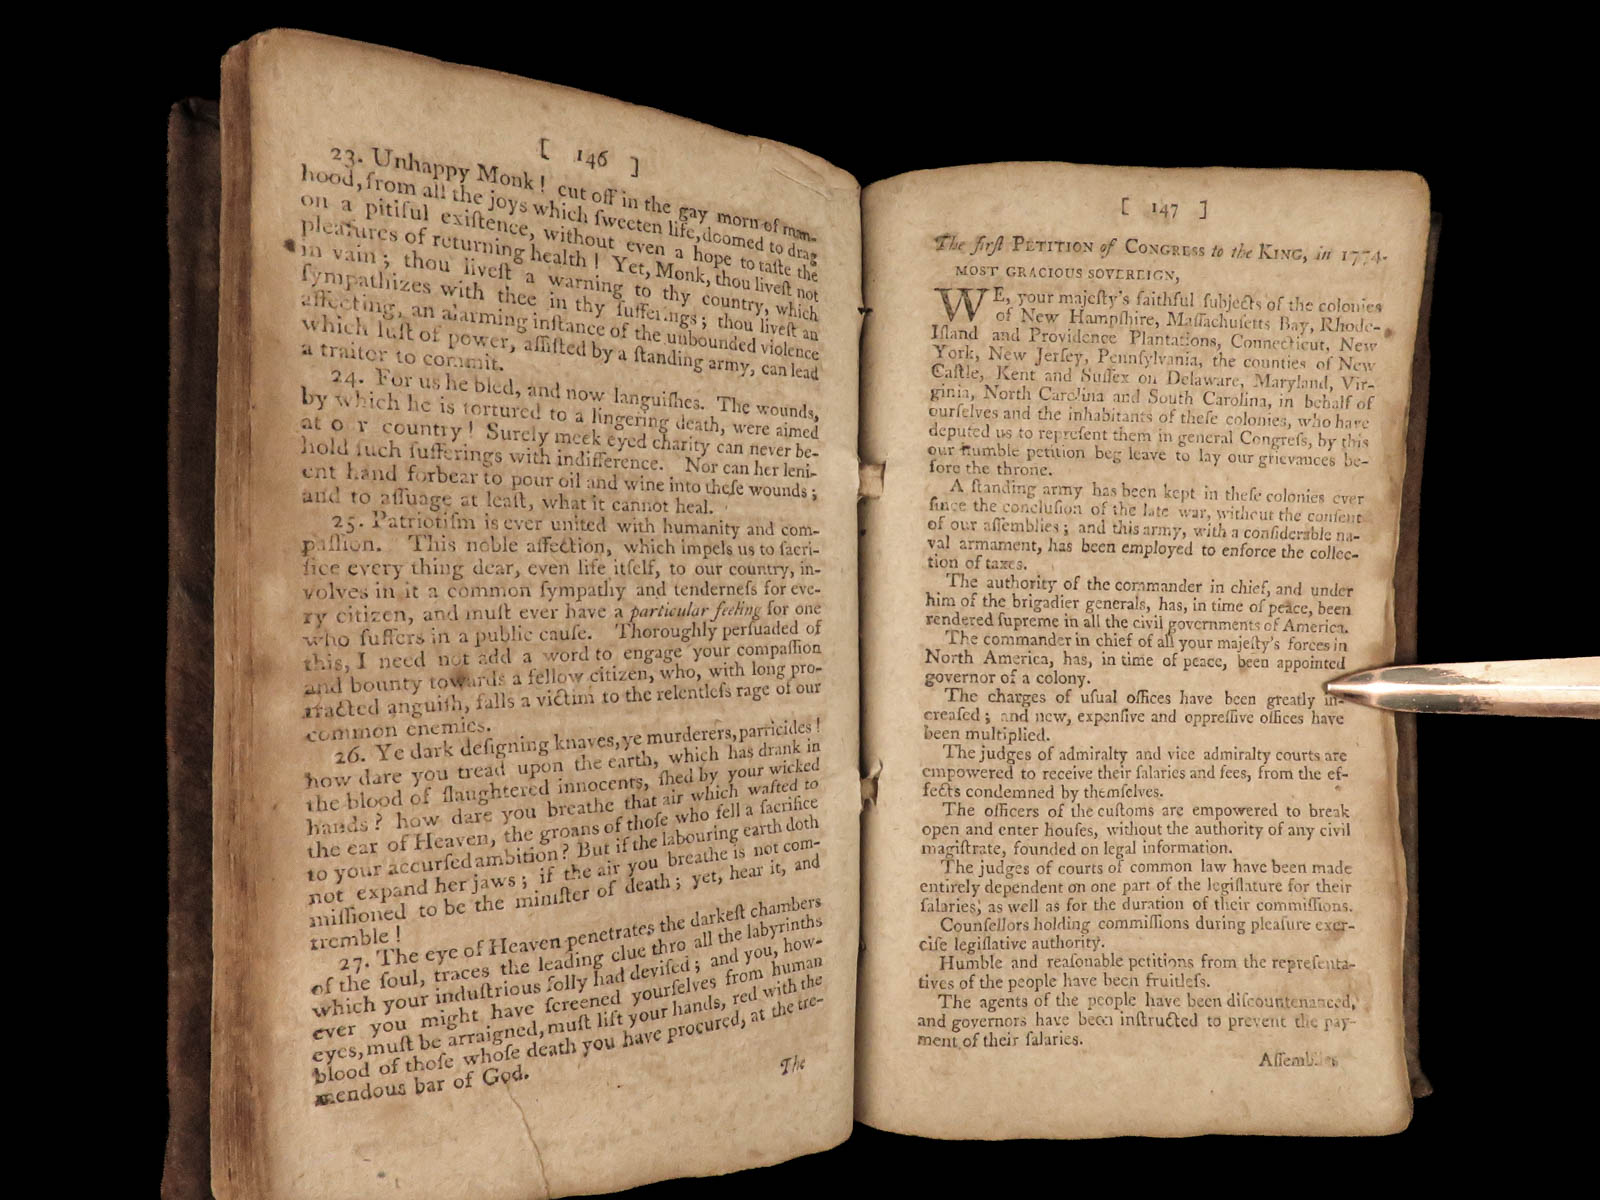 [ 146 ]
23. Unhappy Monk! cut off in the gay morn of man-
hood, from all the joys which ſweeten life, doomed to drag
on a pitiful exiſtence, without even a hope to taſte the
pleaſures of returning health! Yet, Monk, thou liveſt not
in vain; thou liveſt a warning to thy country, which
ſympathizes with thee in thy ſufferings; thou liveſt an
affecting, an alarming inſtance of the unbounded violence
which luſt of power, aſſiſted by a ſtanding army, can lead
a traitor to commit.
24. For us he bled, and now languiſhes. The wounds,
by which he is tortured to a lingering death, were aimed
at o r country! Surely meek eyed charity can never be-
hold ſuch ſufferings with indifference. Nor can her leni-
ent hand forbear to pour oil and wine into theſe wounds;
and to aſſuage at leaſt, what it cannot heal.
25. Patriotiſm is ever united with humanity and com-
paſſion. This noble affection, which impels us to ſacri-
fice every thing dear, even life itſelf, to our country, in-
volves in it a common ſympathy and tenderneſs for eve-
ry citizen, and muſt ever have a particular feeling for one
who ſuffers in a public cauſe. Thoroughly perſuaded of
this, I need not add a word to engage your compaſſion
and bounty towards a fellow citizen, who, with long pro-
tracted anguiſh, falls a victim to the relentleſs rage of our
common enemies.
26. Ye dark deſigning knaves, ye murderers, parricides!
how dare you tread upon the earth, which has drank in
the blood of ſlaughtered innocents, ſhed by your wicked
hands? how dare you breathe that air which wafted to
the ear of Heaven, the groans of thoſe who fell a ſacrifice
to your accurſed ambition? But if the labouring earth doth
not expand her jaws; if the air you breathe is not com-
miſſioned to be the miniſter of death; yet, hear it, and
tremble!
27. The eye of Heaven penetrates the darkeſt chambers
of the ſoul, traces the leading clue thro all the labyrinths
which your induſtrious folly had deviſed; and you, how-
ever you might have ſcreened yourſelves from human
eyes, muſt be arraigned, muſt lift your hands, red with the
blood of thoſe whoſe death you have procured, at the tre-
mendous bar of God.
The
[ 147 ]
The firſt PETITION of CONGRESS to the KING, in 1774.
MOST GRACIOUS SOVEREIGN,
WE, your majeſty's faithful ſubjects of the colonies
of New Hampſhire, Maſſachuſetts Bay, Rhode-
Iſland and Providence Plantations, Connecticut, New
York, New Jerſey, Pennſylvania, the counties of New
Caſtle, Kent and Suſſex on Delaware, Maryland, Vir-
ginia, North Carolina and South Carolina, in behalf of
ourſelves and the inhabitants of theſe colonies, who have
deputed us to repreſent them in general Congreſs, by this
our humble petition beg leave to lay our grievances be-
fore the throne.
A ſtanding army has been kept in theſe colonies ever
ſince the concluſion of the late war, without the conſent
of our aſſemblies; and this army, with a conſiderable na-
val armament, has been employed to enforce the collec-
tion of taxes.
The authority of the commander in chief, and under
him of the brigadier generals, has, in time of peace, been
rendered ſupreme in all the civil governments of America.
The commander in chief of all your majeſty's forces in
North America, has, in time of peace, been appointed
governor of a colony.
The charges of uſual offices have been greatly in-
creaſed; and new, expenſive and oppreſſive offices have
been multiplied.
The judges of admiralty and vice admiralty courts are
empowered to receive their ſalaries and fees, from the ef-
fects condemned by themſelves.
The officers of the cuſtoms are empowered to break
open and enter houſes, without the authority of any civil
magiſtrate, founded on legal information.
The judges of courts of common law have been made
entirely dependent on one part of the legiſlature for their
ſalaries, as well as for the duration of their commiſſions.
Counſellors holding commiſſions during pleaſure exer-
ciſe legiſlative authority.
Humble and reaſonable petitions from the repreſenta-
tives of the people have been fruitleſs.
The agents of the people have been diſcountenanced,
and governors have been inſtructed to prevent the pay-
ment of their ſalaries.
Aſſemblies